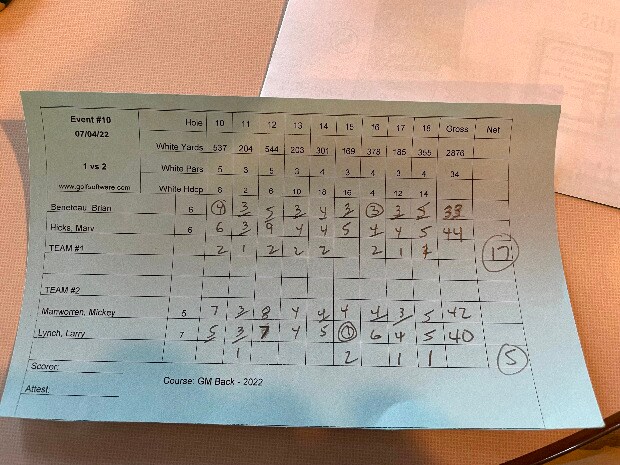 Event #10
07/04/22
1 vs 2
www.golfsoftware.com
Hole 10 11 12 13 14 15 16 17 18 Gross Net
White Yards 537 204 544 203 301 169 378 185 355 2876
White Pars 5 3 5 3 4 3 4 3 4 34
White Hdcp 8 2 6 10 18 16 4 12 14
Beneteau, Brian 6 4 3 5 3 4 3 3 3 5 33
Hicks, Marv 6 6 3 9 4 4 5 4 4 5 44
TEAM #1 2 1 2 2 2 2 1 17
TEAM #2
Manworren, Mickey 5 7 3 8 4 4 4 4 3 5 42
Lynch, Larry 7 5 3 7 4 5 1 6 4 5 40
1 2 1 1 5
Scorer:
Attest:
Course: GM Back - 2022